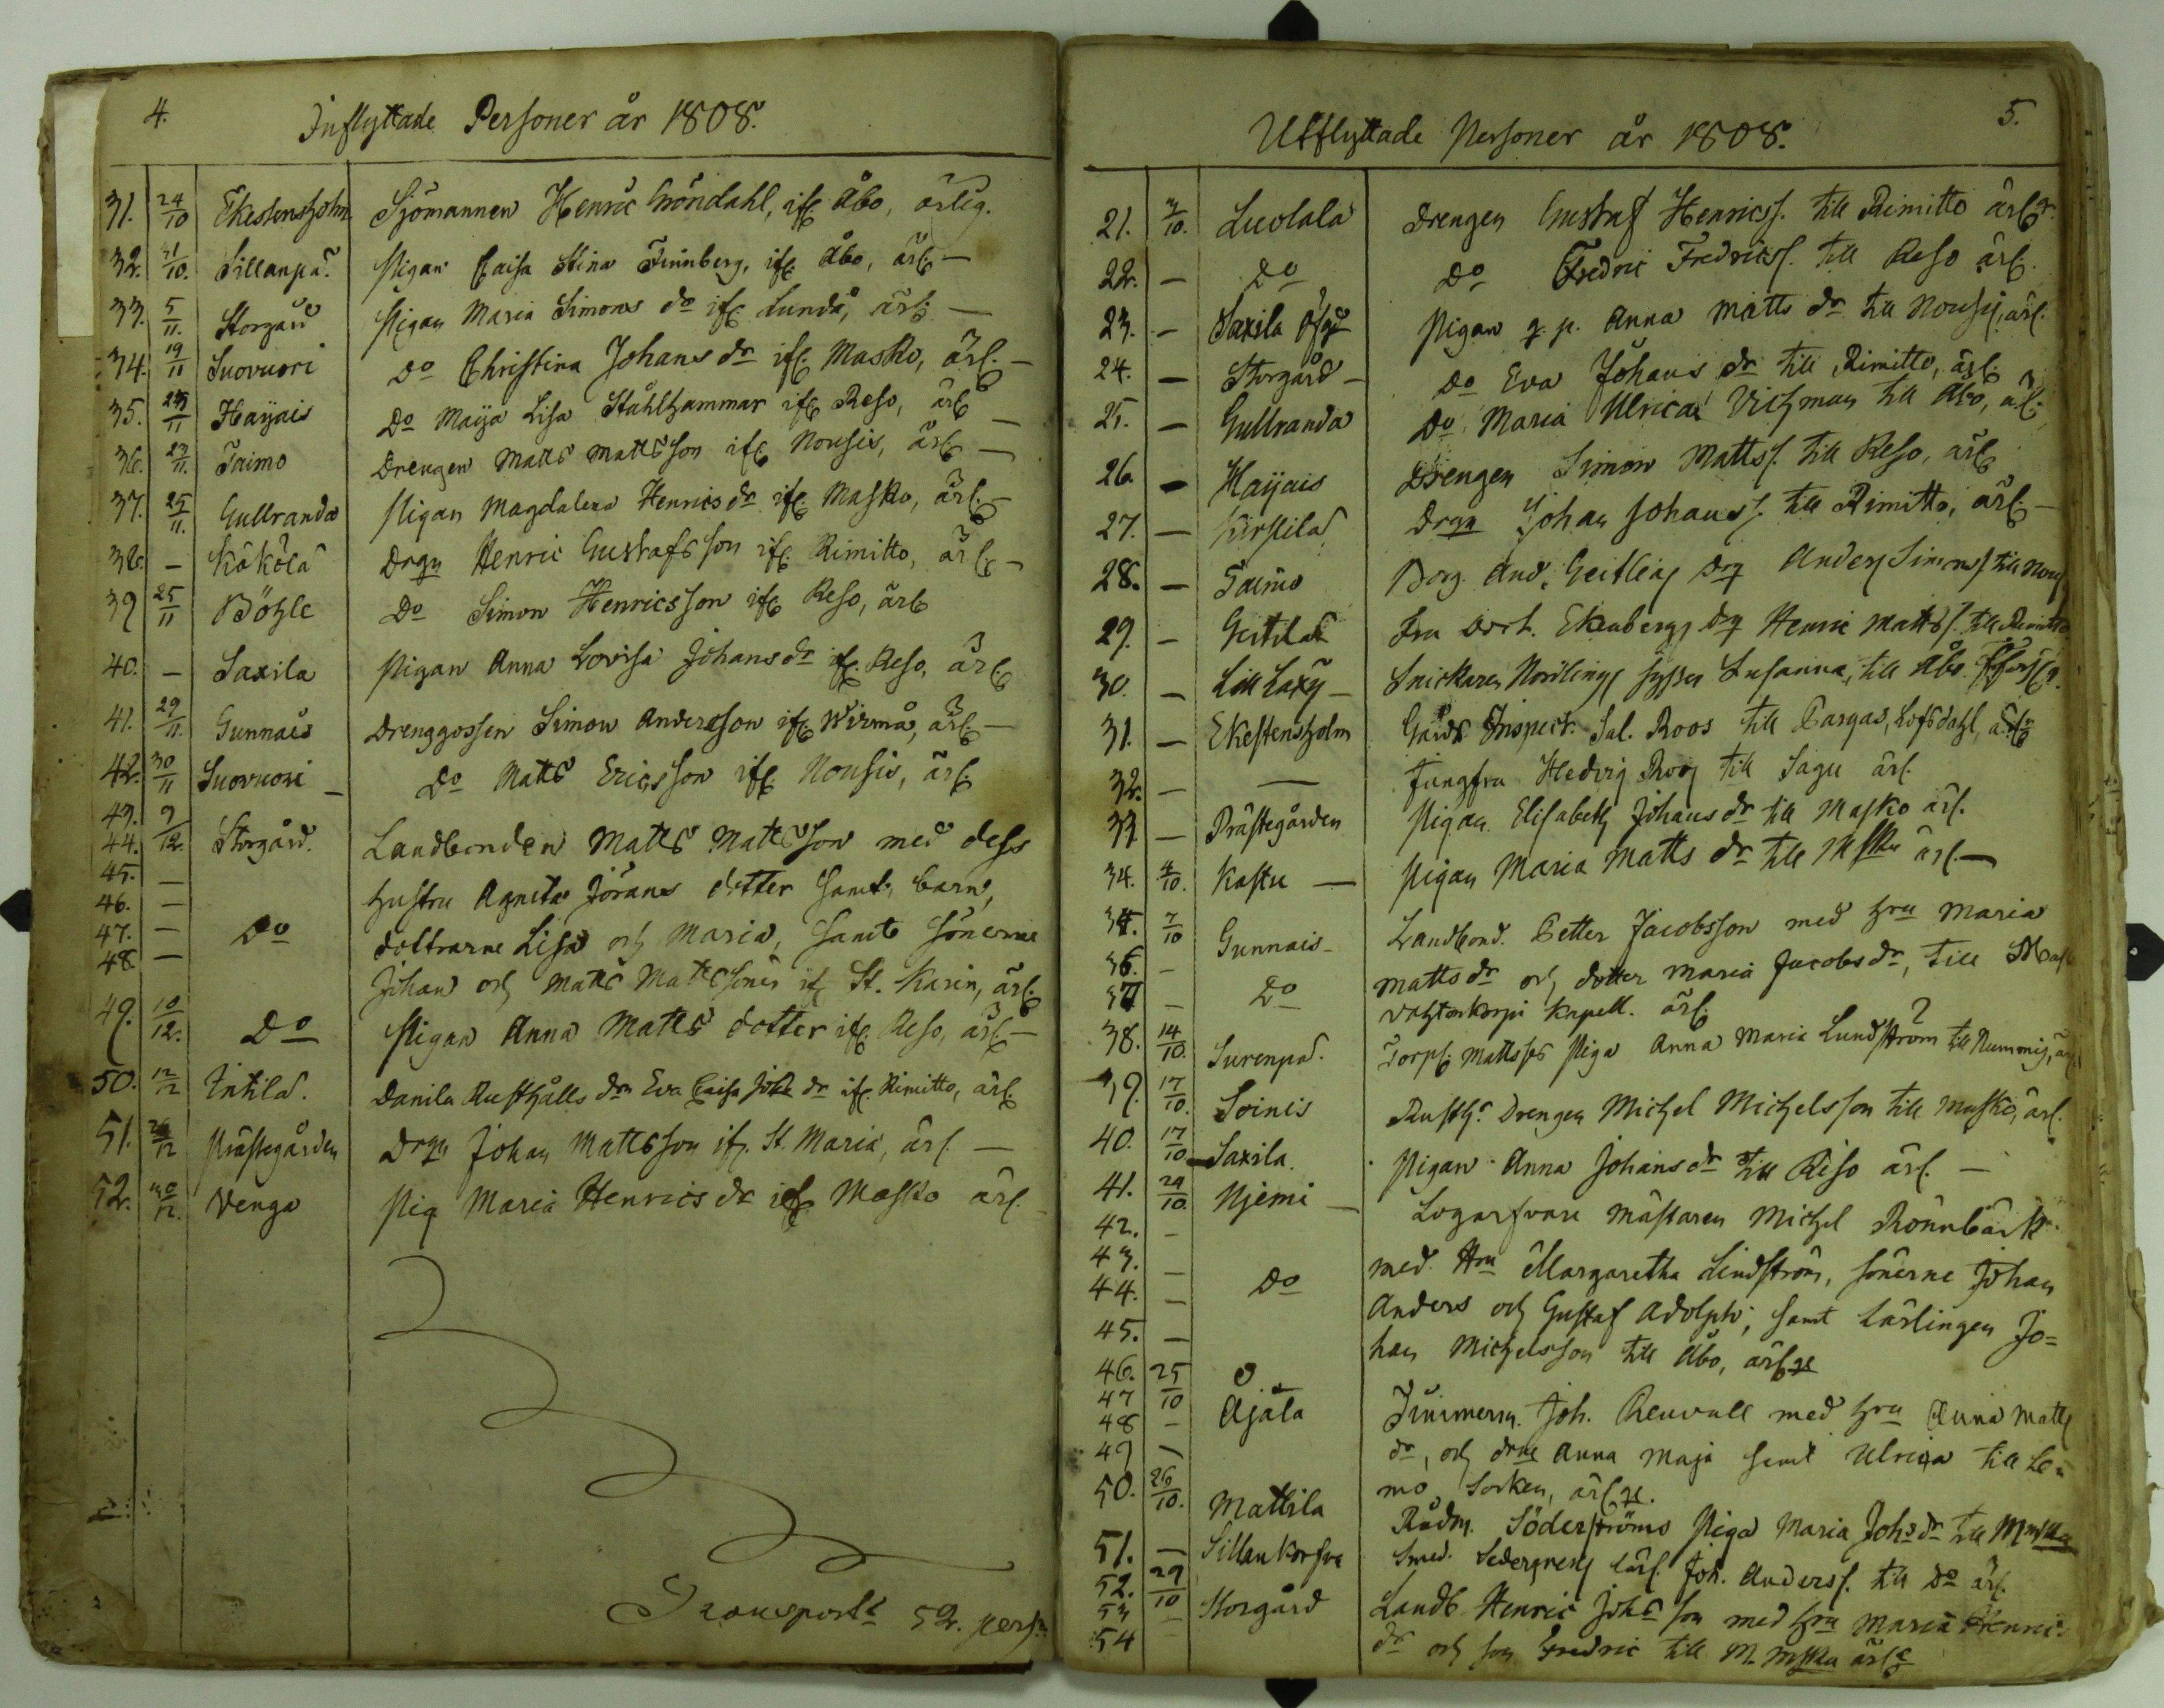 4.
Inflyttade Personer år 1808.
31. 24/10 Ekestensholm Sjömannen Henric Gröndahl, ifr. Åbo, ärlig.
32. 31/10. Sillanpä. Pigan Caisa Stina Finnberg, ifr. Åbo, ärl. —
33. 5/11. Storgård Pigan Maria Simons dr ifr. Lundå, ärl. —
34. 19/11 Suovuori Do Christina Johans dr ifr. Masko, ärl. —
35. 23/11 Haijais Do Maija Lisa Stålhammar ifr. Reso, ärl. —
36. 23/11. Taimo Drengen Matts Mattsson ifr. Nousis, ärl. —
37. 25/11. Gullranda Pigan Magdalena Henrics dr ifr. Masko, ärl. —
38. — Kökölä Drgn Henric Gustafsson ifr. Rimitto, ärl. —
39 25/11 Böhle Do Simon Henricsson ifr. Reso, ärl.
40. — Saxila Pigan Anna Lovisa Johans dr ifr. Reso, ärl.
41. 29/11. Gunnais Drenggossen Simon Andersson ifr. Wirmå, ärl. —
42. 30/11 Suovuori — Do Matts Ericsson ifr. Nousis, ärl.
43. 9/12.
44. Storgård. Landbonden Matts Mattsson med dess
45. —
46. — hustru Agneta Jörans dotter samt barn,
47. — Do döttrarne Lisa och Maria, samt sönerne
48. — Johan och Matts Mattssöner ifr. St. Karin, ärl.
49. 10/12. Do Pigan Anna Matts dotter ifr. Reso, ärl. —
50. 12/12 Intila. Danila Rusthålls drn Eva Caisa Johs dr ifr. Rimitto, ärl.
51. /12 Prästegården Drgn Johan Mattsson ifr. St. Maria, ärl. —
52. 30/12. Venga Pig Maria Henrics dr ifr Masko ärl.
Transport 52. pers.
5.
Utflyttade Personer år 1808.
21. 3/10. Luolala Drengen Gustaf Henricss. till Rimitto ärl.
22. — Do Do Fredric Fredricss. till Reso ärl.
23. — Saxila Pigan g. p. Anna Matts dr till Nousis, ärl.
24. — Storgård — Do Eva Johans dr till Rimitto, ärl.
25. — Gullranda Do Maria Ulrica Vichman till Åbo, ärl.
26. — Haijais Drengen Simon Mattss. till Reso, ärl
27. — Kirstila Drgn Johan Johanss. till Rimitto, ärl —
28. — Taimo Borg. And. Geitlins drg Anders Simonss till Nous
29. — Geitila Fru Dort. Ekenbergs drg Henric Mattss. till Rimitto
30. — Lill Laxy — Snickaren Nordlings Susanna, till Åbo.
31. — Ekestensholm Gårds Inspect. Sal. Roos till Pargas, Lofsdahl, ärl
32. — — Jungfru Hedvig Roos till Sagu ärl.
33 — Prästegården Pigan Elisabeth Johans dr till Masko ärl.
34. 4/10. Kastu — Pigan Maria Matts dr till ärl. —
35. 7/10 Gunnais — Landbond. Petter Jacobsson med hru Maria
36. — Matts dr och dotter Maria Jacobs dr, till
37 — Do Vahtokorpi Kapell. ärl.
38. 14/10. Surenpä. Torp. Mattsses Piga Anna Maria Lundström till Nummis, ärl.
39. 17/10. Soinis Rusth. Drengen Michel Michelsson till Masko, ärl.
40. 17/10 Saxila. Pigan Anna Johans dr till Reso ärl. —
41. 24/10. Njemi — Logarfvare mästaren Michel Rönnbäck
42. —
43. — med Hru Margaretha Lindström, sönerne Johan
44. — Do Anders och Gustaf Adolph, samt Lärlingen Jo=
45. — han Michelsson till Åbo, ärl
46. 25/10
47 Äjälä Timmerm. Joh. Renvall med hru Anna Matts
48 —
49 — dr, och drne Anna Maja samt Ulrica till Le=
mo Sorken, ärl.
50. 26/10. Mattila Rådm. Söderströms Piga Maria Johs dr till
51. — Sillankorfva Smed. Sedergrens lärl. Joh. Anderss. till Do ärl.
52. 29/10 Storgård Landb. Henric Johs son med hru Maria Henric
53 —
54 dr och son Fredric till ärl